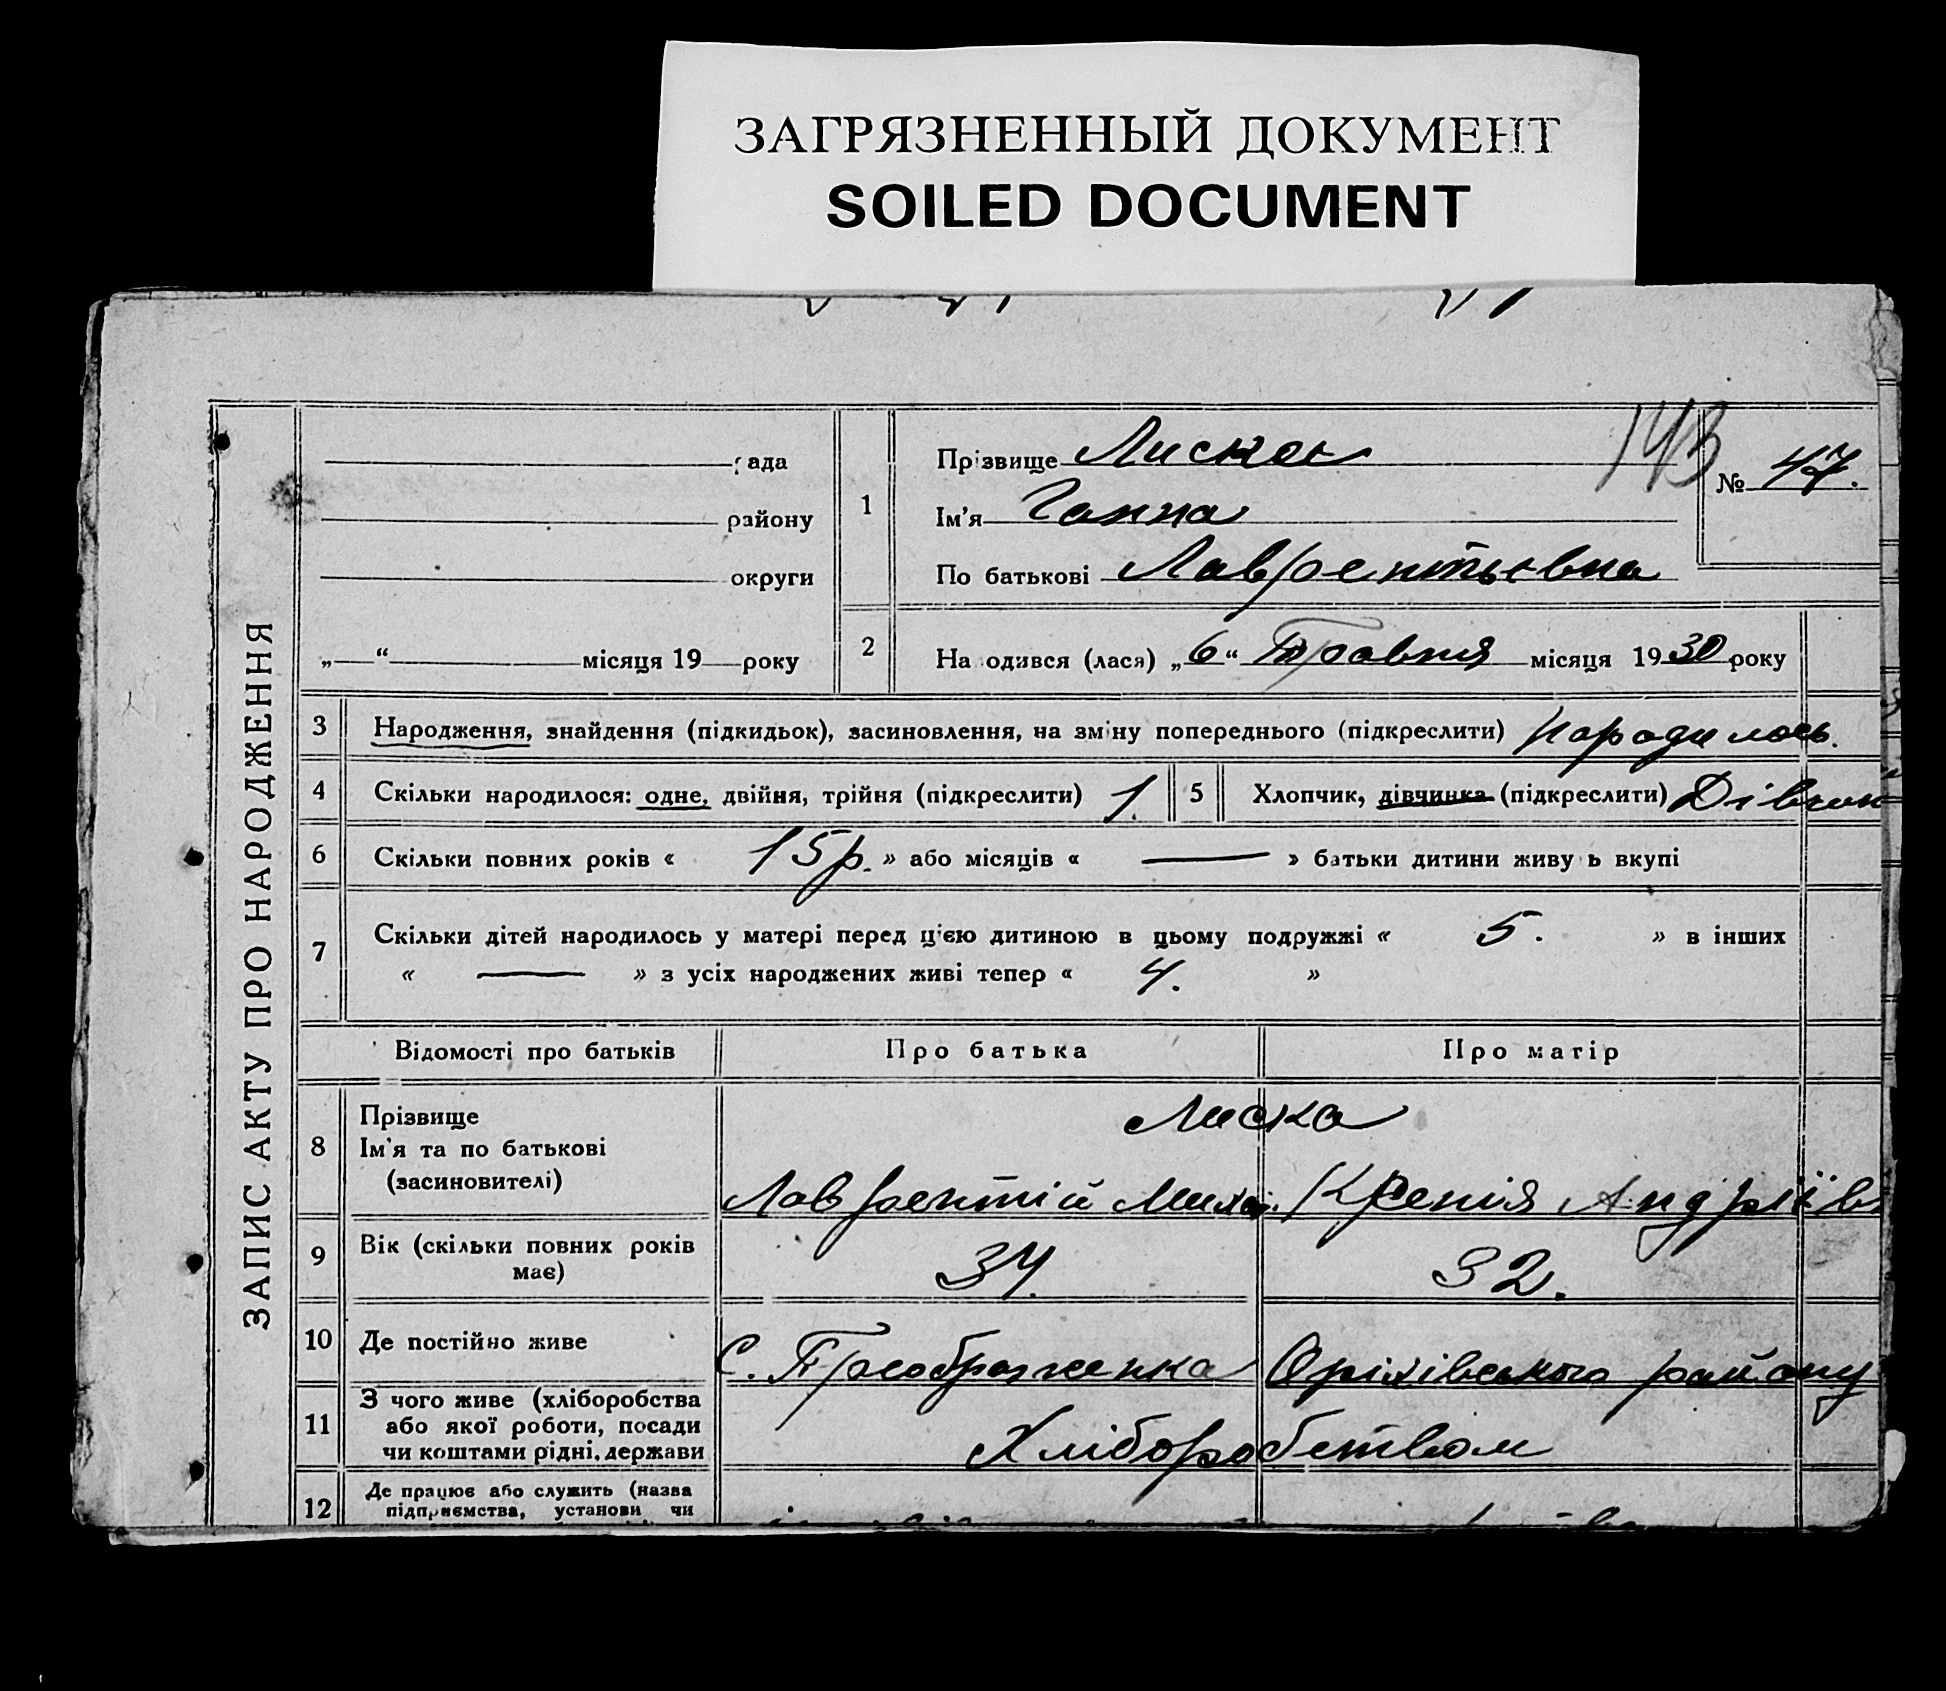 ЗАГРЯЗНЕННЫЙ ДОКУМЕНТ
SOILED DOCUMENT
ЗАПИС АКТУ ПРО НАРОДЖЕННЯ
рада
району
округи
„ “ місяця 19 року
1
Прізвище Лиска
143
№ 47.
Ім'я Ганна
По батькові Лаврентьєвна
2 Народився (лася) „6“ Травня місяця 1930 року
3 Народження, знайдення (підкидьок), засиновлення, на зміну попереднього (підкреслити) народилось.
4 Скільки народилося: одне, двійня, трійня (підкреслити) 1. 5 Хлопчик, дівчинка (підкреслити) Дівчин
6 Скільки повних років « 15 р. » або місяців « — » батьки дитини живуть вкупі
7 Скільки дітей народилось у матері перед цією дитиною в цьому подружжі « 5. » в інших
« — » з усіх народжених живі тепер « 4. »
Відомості про батьків Про батька Про матір
8 Прізвище
Ім'я та по батькові
(засиновителі)
Лиска
Лаврентій Михай. Ксенія Андріїв
9 Вік (скільки повних років
має)
34. 32.
10 Де постійно живе С. Преображенка Оріхівського району
11 З чого живе (хліборобства
або якої роботи, посади
чи коштами рідні, держави
Хліборобством
12 Де працює або служить (назва
підприємства, установи чи